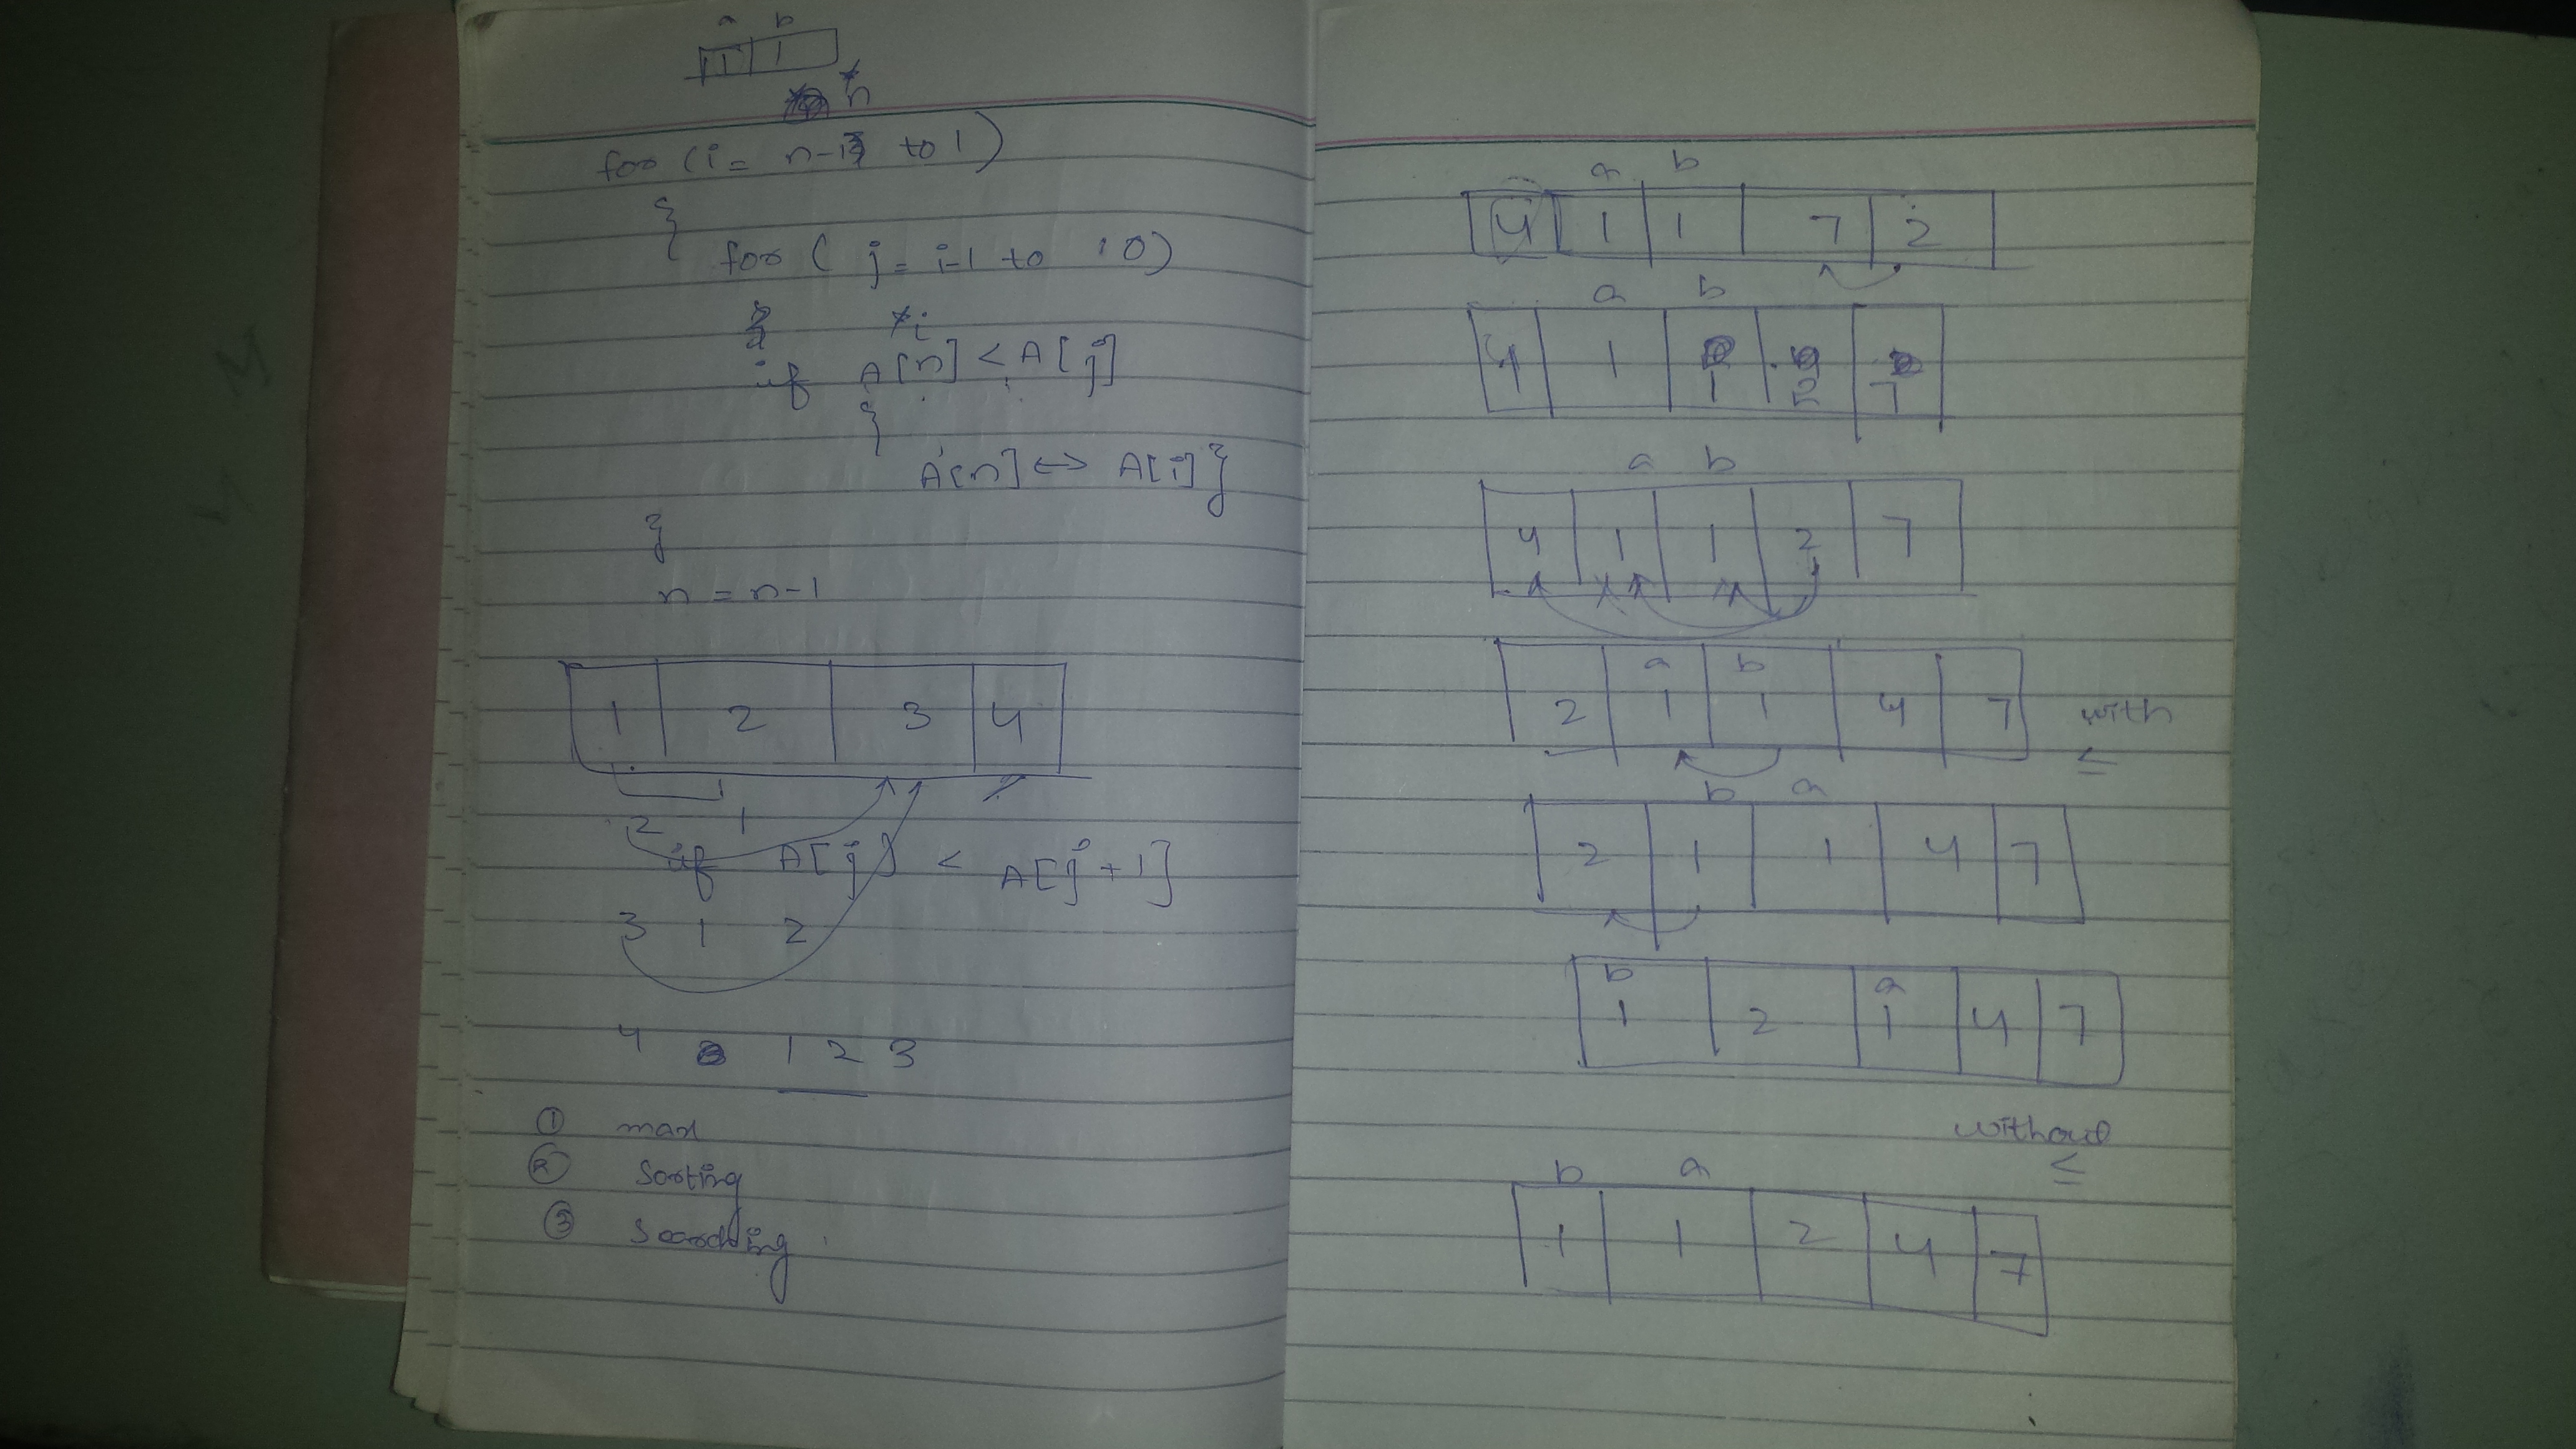 a b
1 1
n
for (i = n-1 to 1)
{
for ( j = i-1 to 0)
{ i
if A[n] < A[j]
{
A[n] <-> A[i] }
}
n = n-1
1 2 3 4
2 1
if A[j] < A[j+1]
3 1 2
4 1 2 3
① max
② Sorting
③ Searching
a b
4 1 1 7 2
a b
4 1 1 2 7
a b
4 1 1 2 7
a b
2 1 1 4 7 with
≤
b a
2 1 1 4 7
b a
1 2 1 4 7
without
≤
b a
1 1 2 4 7